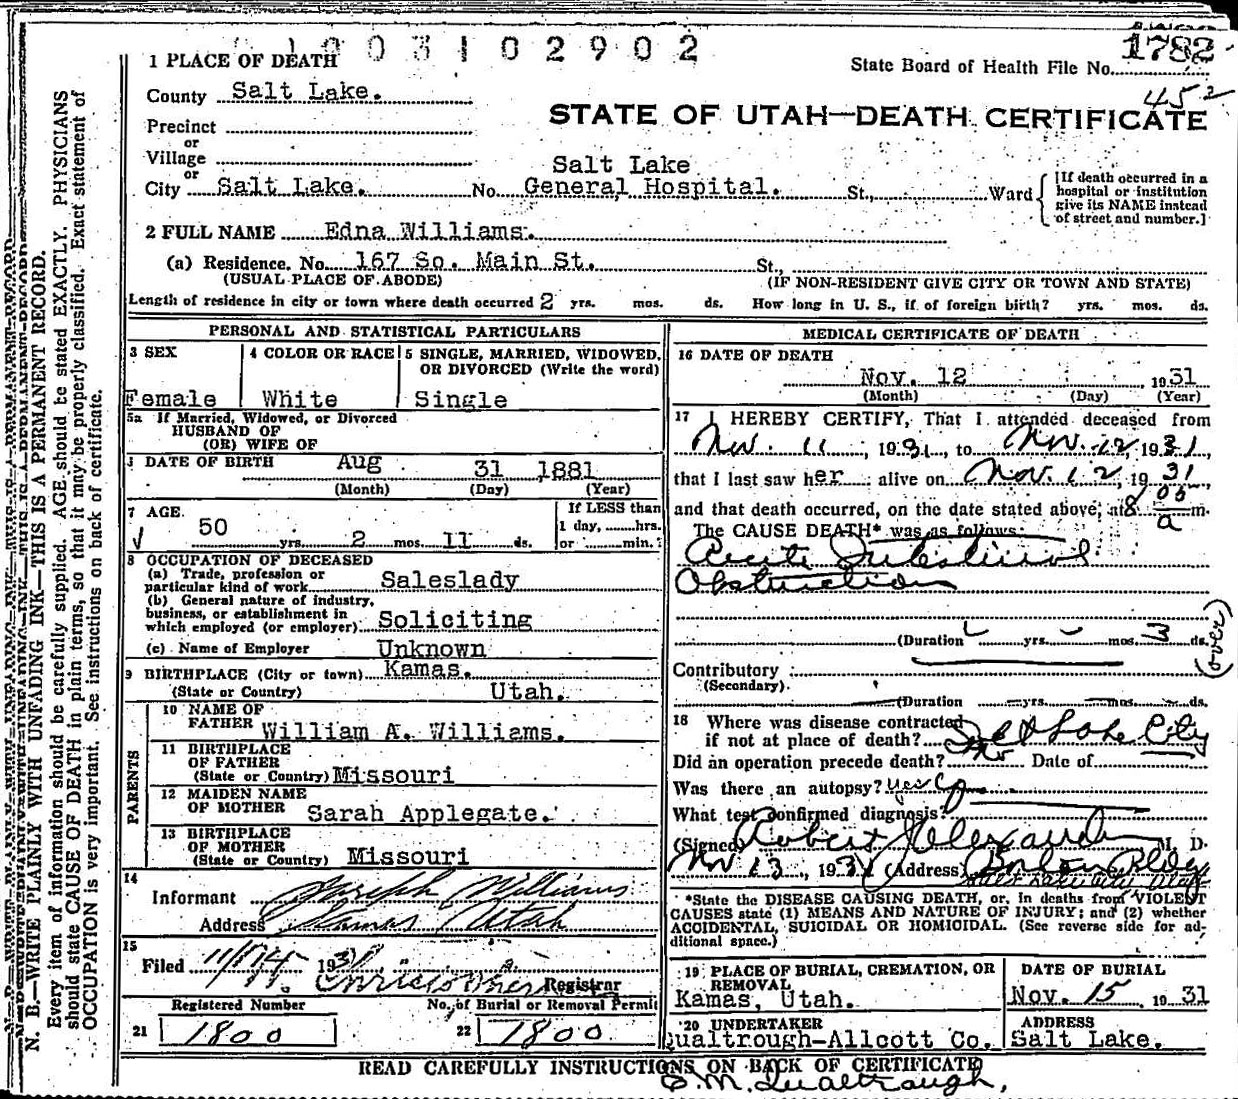 1003102902
1782
1 PLACE OF DEATH
State Board of Health File No.
452
County Salt Lake.
STATE OF UTAH—DEATH CERTIFICATE
Precinct
or
Village
or
City Salt Lake. No. Salt Lake General Hospital. St., Ward
[If death occurred in a hospital or institution give its NAME instead of street and number.]
2 FULL NAME Edna Williams.
(a) Residence. No. 167 So. Main St. St.,
(USUAL PLACE OF ABODE) (IF NON-RESIDENT GIVE CITY OR TOWN AND STATE)
Length of residence in city or town where death occurred 2 yrs. mos. ds. How long in U. S., if of foreign birth? yrs. mos. ds.
PERSONAL AND STATISTICAL PARTICULARS
3 SEX
Female
4 COLOR OR RACE
White
5 SINGLE, MARRIED, WIDOWED,
OR DIVORCED (Write the word)
Single
5a If Married, Widowed, or Divorced
HUSBAND OF
(OR) WIFE OF
DATE OF BIRTH Aug 31 1881
(Month) (Day) (Year)
7 AGE.
50 yrs. 2 mos. 11 ds.
If LESS than
1 day, hrs.
or min.
8 OCCUPATION OF DECEASED
(a) Trade, profession or
particular kind of work Saleslady
(b) General nature of industry,
business, or establishment in
which employed (or employer) Soliciting
(c) Name of Employer Unknown
9 BIRTHPLACE (City or town) Kamas.
(State or Country) Utah.
PARENTS
10 NAME OF
FATHER William A. Williams.
11 BIRTHPLACE
OF FATHER
(State or Country) Missouri
12 MAIDEN NAME
OF MOTHER Sarah Applegate.
13 BIRTHPLACE
OF MOTHER
(State or Country) Missouri
14
Informant Joseph Williams
Address Kamas Utah
15
Filed 193
Registrar
Registered Number
21 1800
No. of Burial or Removal Permit
22 1800
MEDICAL CERTIFICATE OF DEATH
16 DATE OF DEATH
Nov. 12 1931
(Month) (Day) (Year)
17 I HEREBY CERTIFY, That I attended deceased from
Nov. 11, 1931, to Nov. 12, 1931,
that I last saw her alive on Nov. 12, 1931,
and that death occurred, on the date stated above, at 8 05 a m.
The CAUSE DEATH* was as follows:
Acute Intestinal
Obstruction
(Duration yrs. mos. 3 ds.
(over)
Contributory
(Secondary).
(Duration yrs. mos. ds.
18 Where was disease contracted
if not at place of death? Salt Lake City
Did an operation precede death? no Date of
Was there an autopsy? yes
What test confirmed diagnosis?
(Signed) Robert Alexander M. D.
Nov 13, 1931 (Address) Boston Bldg
*State the DISEASE CAUSING DEATH, or, in deaths from VIOLENT
CAUSES state (1) MEANS AND NATURE OF INJURY; and (2) whether
ACCIDENTAL, SUICIDAL OR HOMICIDAL. (See reverse side for ad-
ditional space.)
19 PLACE OF BURIAL, CREMATION, OR
REMOVAL
Kamas, Utah.
DATE OF BURIAL
Nov. 15 1931
20 UNDERTAKER
Qualtrough-Allcott Co.
ADDRESS
Salt Lake.
READ CAREFULLY INSTRUCTIONS ON BACK OF CERTIFICATE
C. M. Qualtraugh,
N. B.—WRITE PLAINLY WITH UNFADING INK—THIS IS A PERMANENT RECORD.
Every item of information should be carefully supplied. AGE should be stated EXACTLY. PHYSICIANS
should state CAUSE OF DEATH in plain terms, so that it may be properly classified. Exact statement of
OCCUPATION is very important. See instructions on back of certificate.